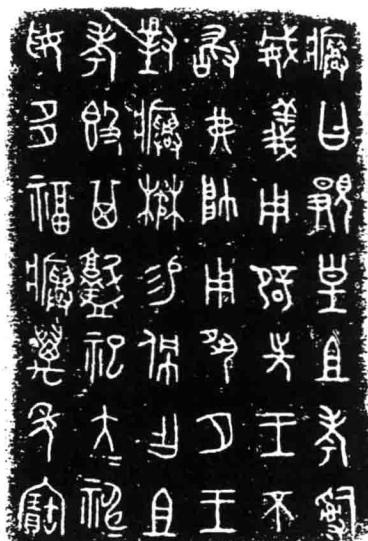 𤼈曰覭皇且考𤔲
威義用辟先王不
敢弗帥用夙夕王
對𤼈楙易佩乍且
考簋其盩祀大＝神＝
妥多福𤼈萬年寶